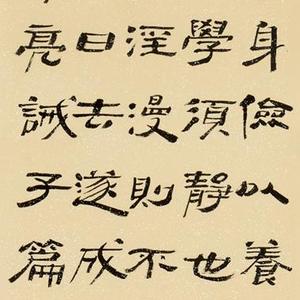 身儉以養
學須靜也
淫漫則不
日去遂成
亮誡子篇